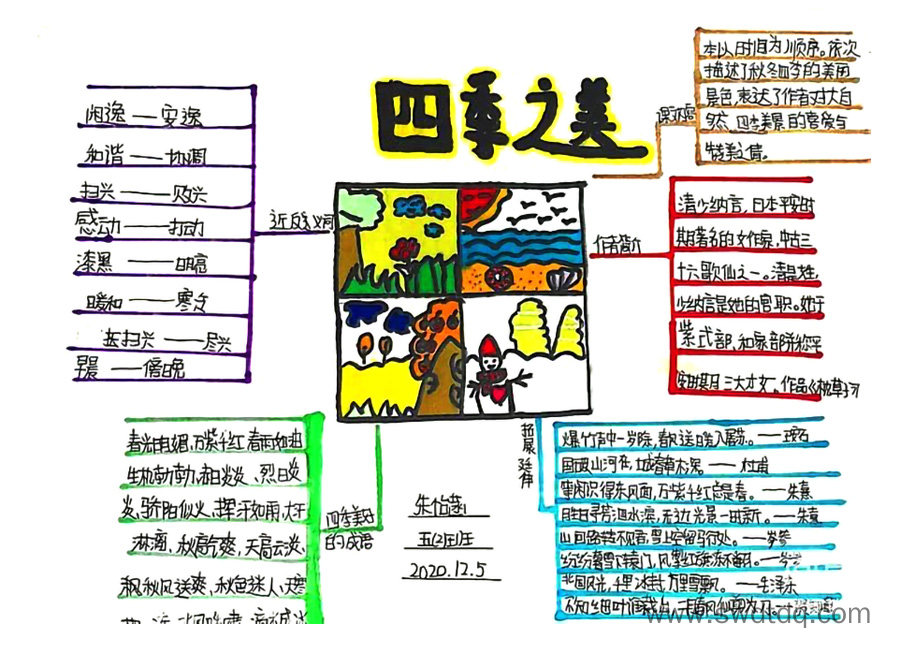 四季之美
课文内容
本以时间为顺序。依次
描述了秋冬四季的美丽
景色,表达了作者对大自
然、四季美景的喜爱与
赞美之情。
近反义词
闲逸——安逸
和谐——协调
扫兴——败兴
感动——打动
漆黑——明亮
暖和——寒冷
扫兴——尽兴
早晨——傍晚
作者简介
清少纳言,日本平安时
期著名的女作家,中古三
十六歌仙之一。清是姓,
少纳言是她的官职。她于
紫式部,和泉部并称平
三大才女。作品《枕草子》
四季美好
的成语
春光明媚、万紫千红、春雨如油
生机勃勃、炎炎、烈日炎
炎、骄阳似火、挥汗如雨、大汗
淋漓、秋高气爽、天高云淡、
枫秋风送爽、秋色迷人、天寒
朱怡
五(2)班
2020.12.5
拓展延伸
爆竹声中一岁除,春风送暖入屠苏。——王安石
国破山河在,城春草木深。——杜甫
等闲识得东风面,万紫千红总是春。——朱熹
胜日寻芳泗水滨,无边光景一时新。——朱熹
山回路转不见君,雪上空留马行处。——岑参
纷纷暮雪下辕门,风掣红旗冻不翻。——岑参
北国风光,千里冰封,万里雪飘。——毛泽东
不知细叶谁裁出,二月春风似剪刀。——贺知章
www.swdtdq.com